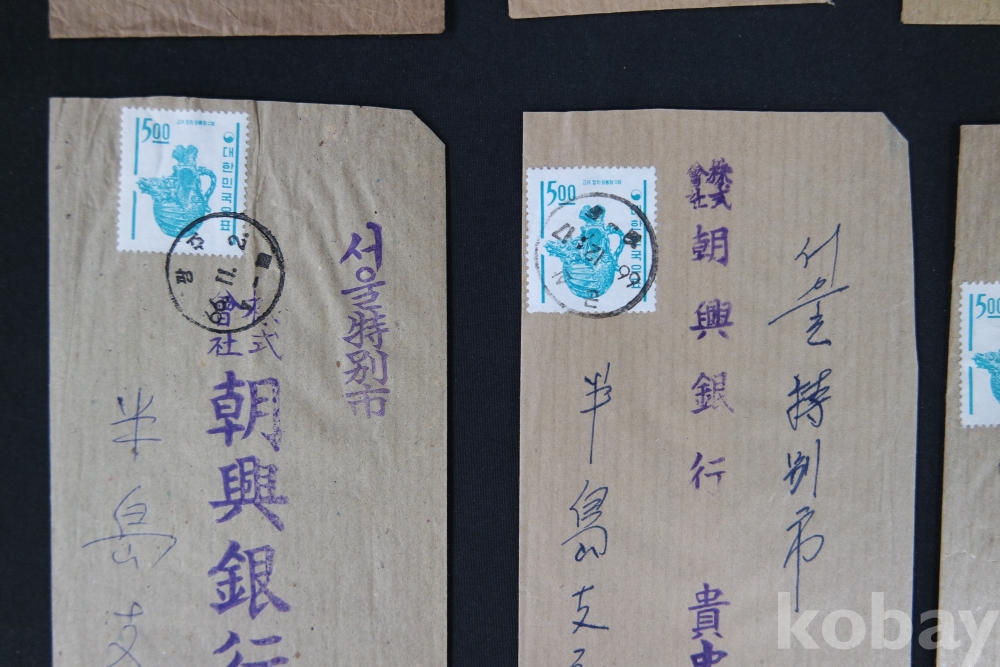 5.00
대한민국우표
서울特別市
株式會社
朝興銀行
半島支
5.00
한민국우표
서울特別市
株式會社
朝興銀行 貴中
半島支
5.00
kobay